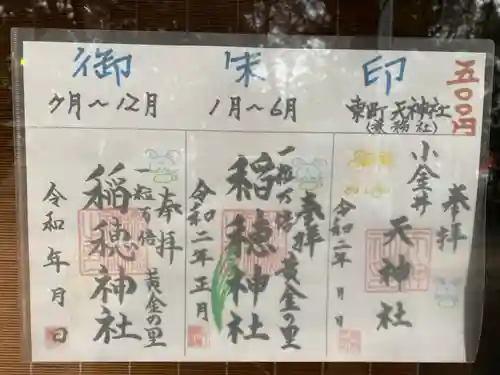 御朱印
五〇〇円
7月～12月
1月～6月
東町 天神社
(兼務社)
一粒万倍
奉拝
稲穂神社
黄金の里
令和 年 月 日
一粒万倍
奉拝
稲穂神社
黄金の里
令和二年正月
奉拝
小金井
天神社
令和二年 月 日